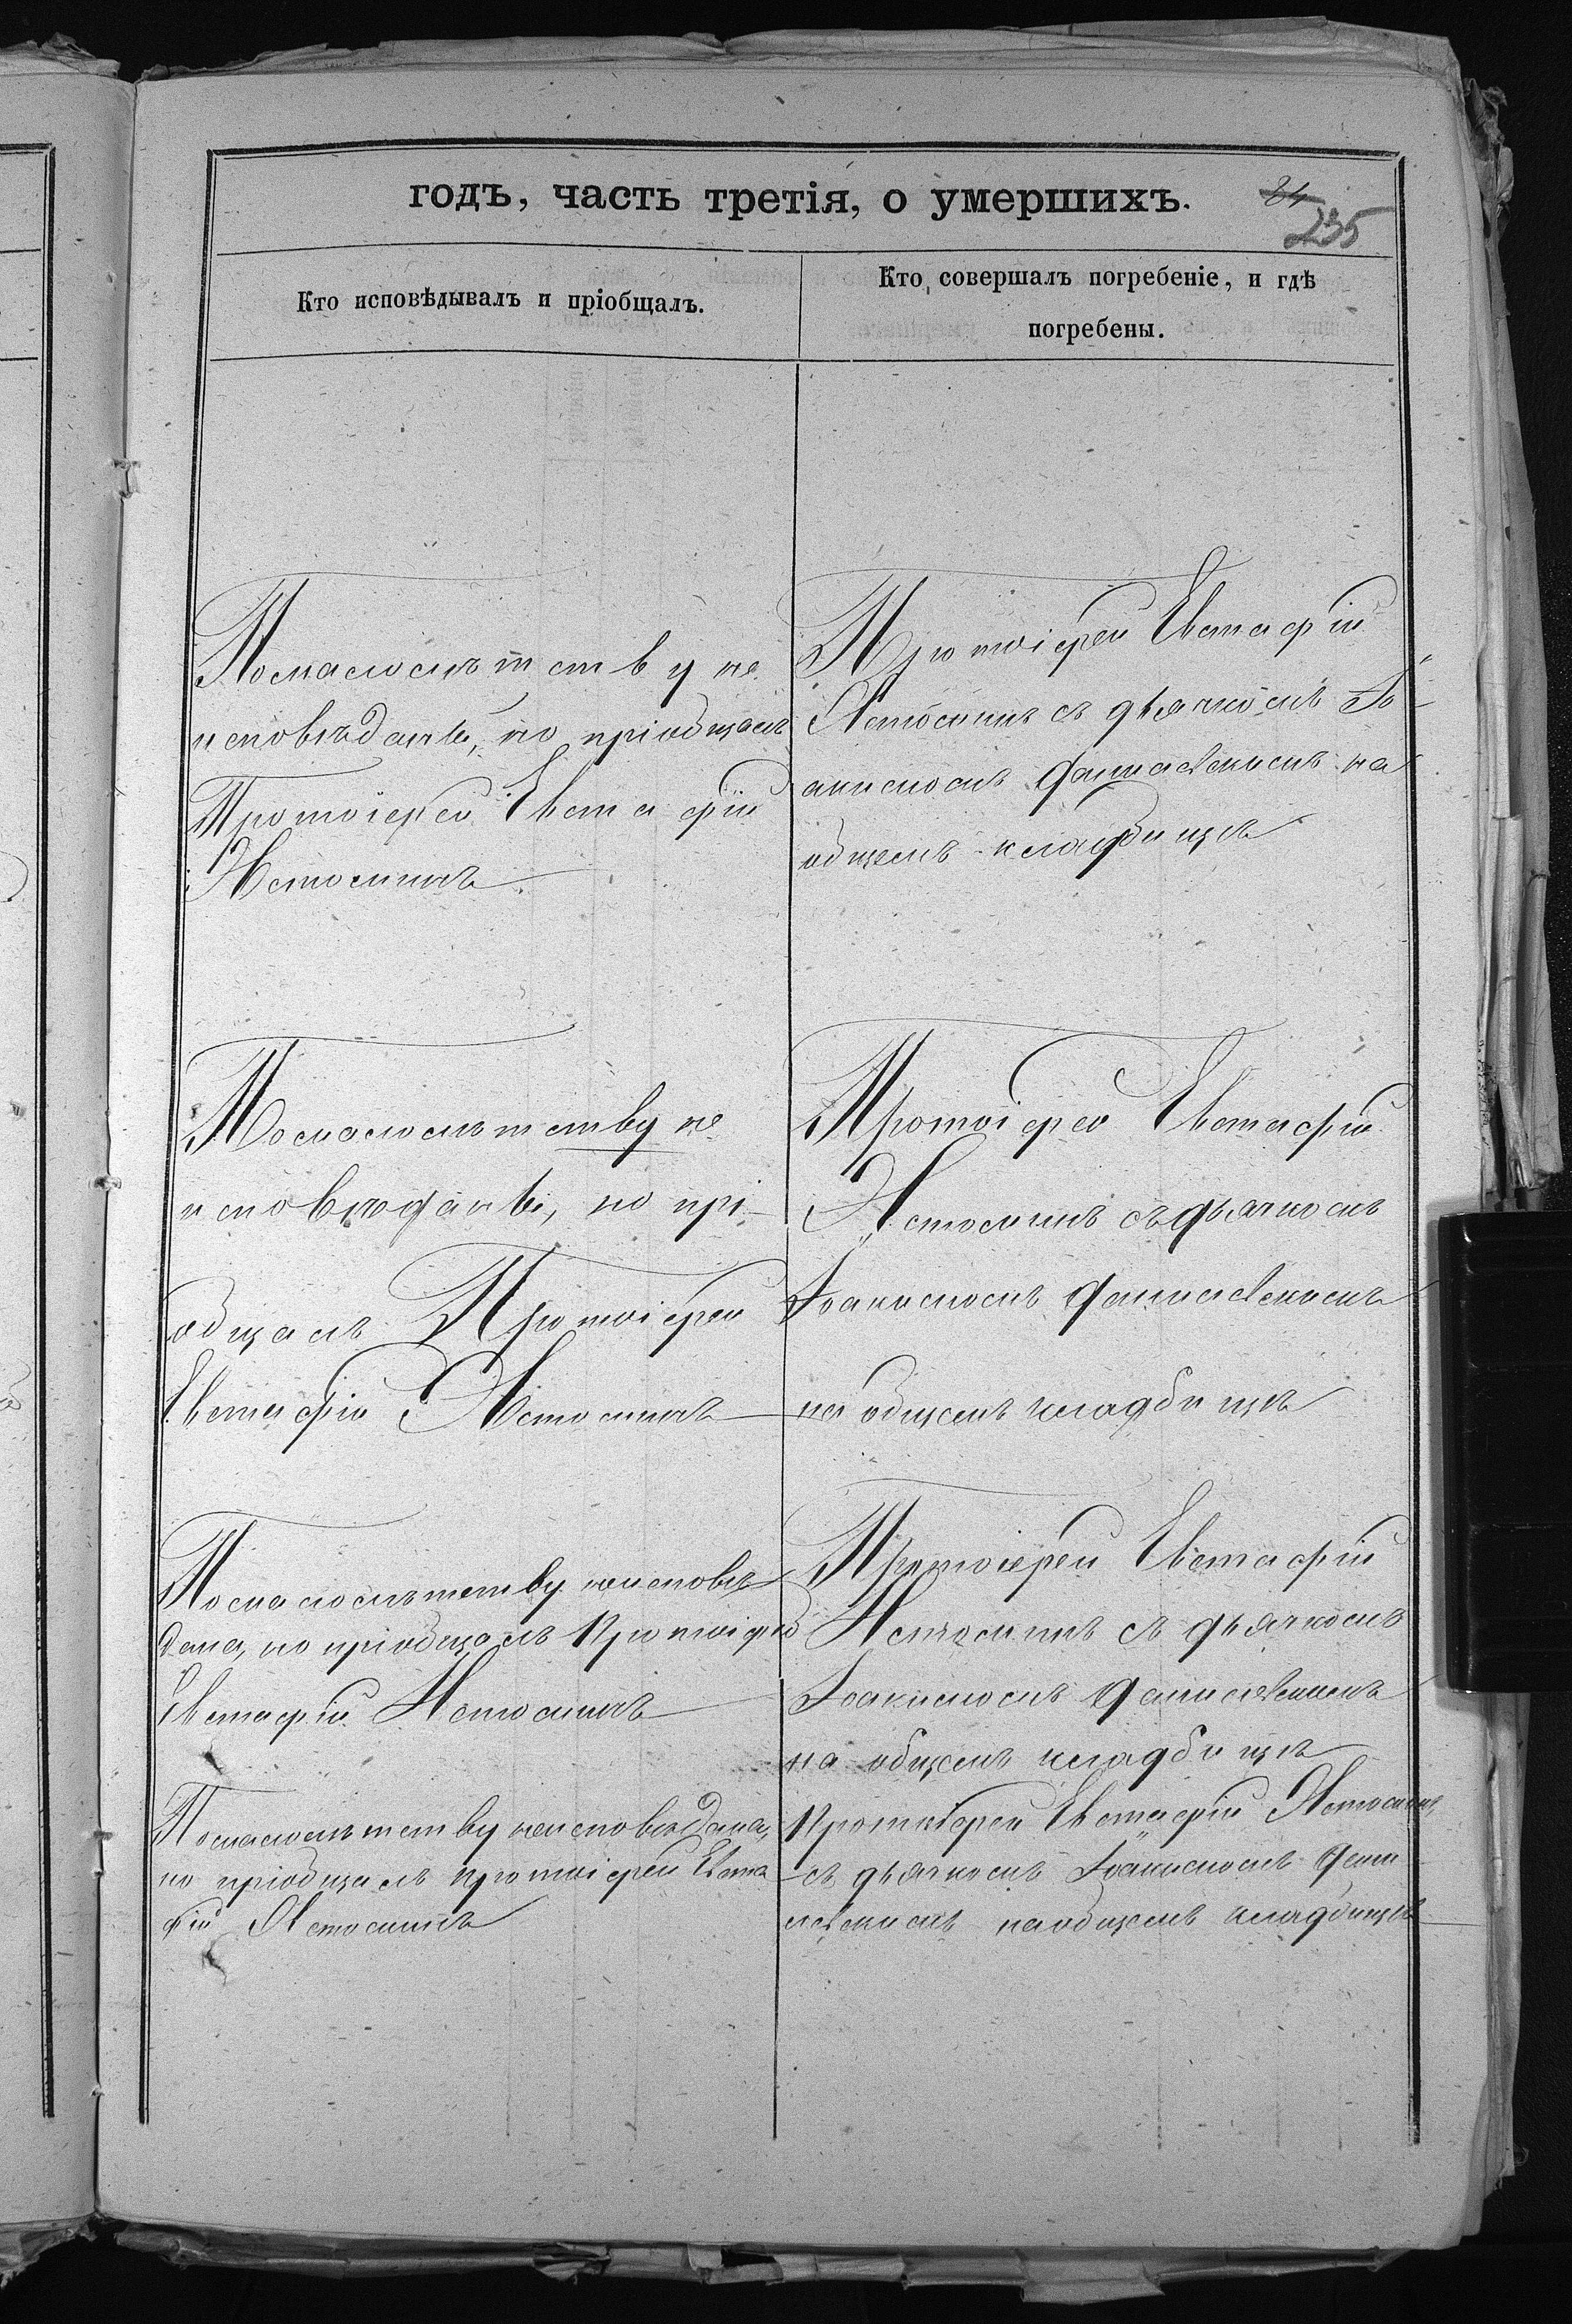 годъ, часть третія, о умершихъ.
84
235
Кто исповѣдывалъ и пріобщалъ.
Кто совершалъ погребеніе, и гдѣ
погребены.
По малолѣтству не
исповѣданъ, но пріобщалъ
Протоіерей Евстафій
Истоминъ
Протоіерей Евстафій
Истоминъ съ дьячкомъ Іо-
акимомъ Данилевскимъ на
общемъ кладбищѣ
По малолѣтству не
исповѣданъ, но прі-
общалъ Протоіерей
Евстафій Истоминъ
Протоіерей Евстафій
Истоминъ съ дьячкомъ
Іоакимомъ Данилевскимъ
на общемъ кладбищѣ
По малолѣтству не исповѣ
дана, но пріобщалъ Протоіерей
Евстафій Истоминъ
Протоіерей Евстафій
Истоминъ съ дьячкомъ
Іоакимомъ Данилевскимъ
на общемъ кладбищѣ
По малолѣтству не исповѣдана,
но пріобщалъ протоіерей Евста
фій Истоминъ
Протоіерей Евстафій Истоминъ
съ дьячкомъ Іоакимомъ Дани
левскимъ на общемъ кладбищѣ